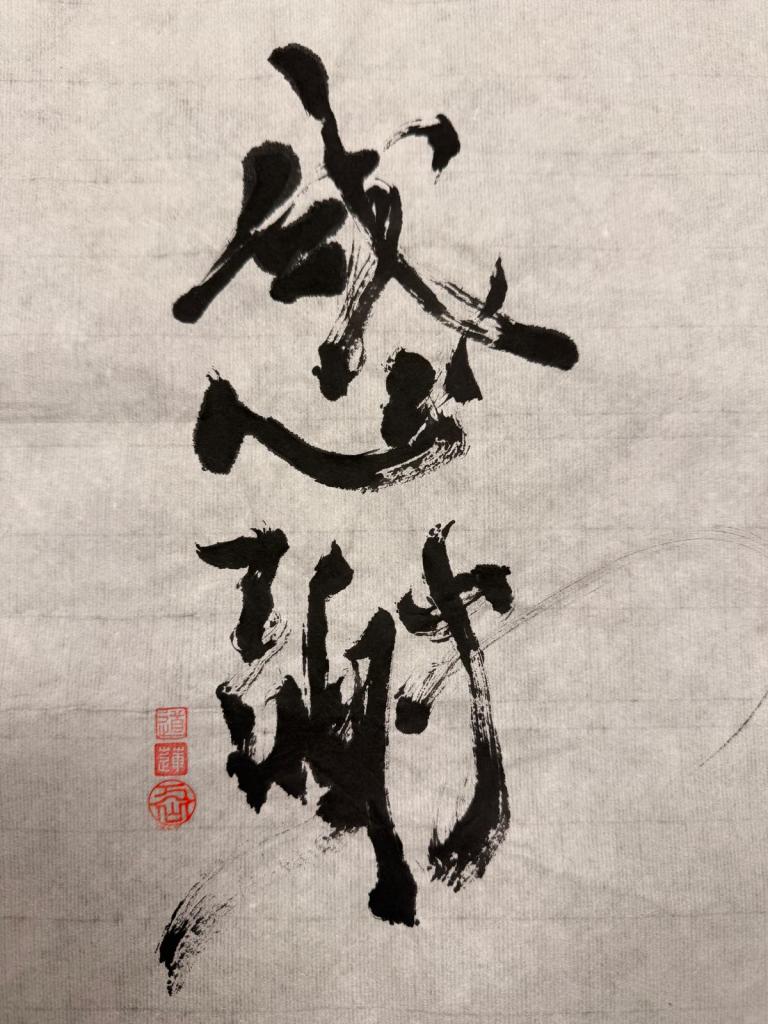 感謝
道
蓮